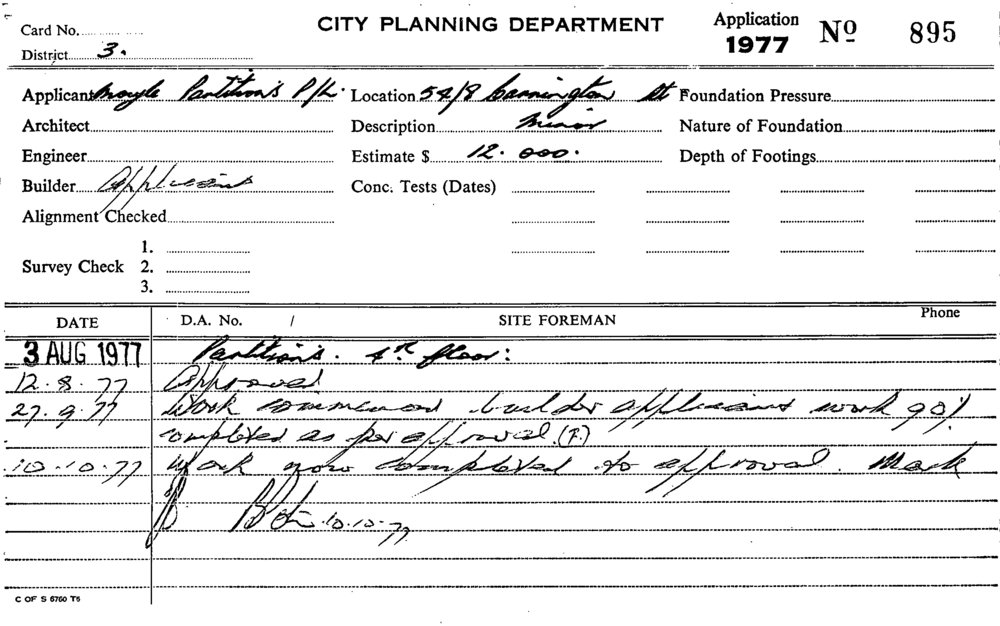 Card No.
CITY PLANNING DEPARTMENT
Application 1977 No 895
District 3.
Applicant Moyle Partitions P/L. Location 54/8 Carrington St Foundation Pressure
Architect Description Minor Nature of Foundation
Engineer Estimate $ 12.000. Depth of Footings
Builder Applicant Conc. Tests (Dates)
Alignment Checked
Survey Check 1.
2.
3.
DATE D.A. No. / SITE FOREMAN Phone
3 AUG 1977 Partitions. 4th floor:
12.8.77 Approved
27.9.77 Work commenced builder applicant work 90%
completed as per approval. (F.)
10.10.77 Work now completed to approval. Mark
10.10.77
C OF S 6760 T6